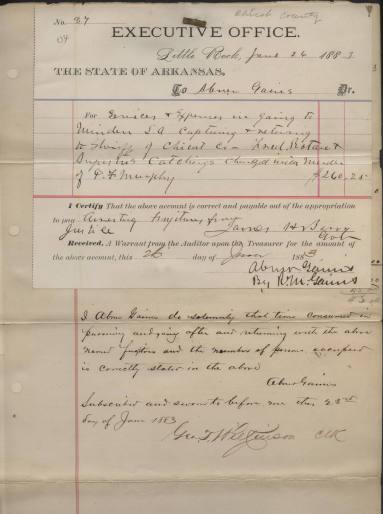 Chicot County
No. 27
EXECUTIVE OFFICE.
Little Rock, June 26 1883
THE STATE OF ARKANSAS,
To Abner Gains Dr.
For Services & Expenses in going to
Minden LA Capturing & returning
to Sheriff of Chicot Co
Catchings Charged with Murder
of P. F. Murphy $260.25
I Certify That the above account is correct and payable out of the appropriation
to pay Arresting Fugitives from
Justice James H Berry
Gov
Received, A Warrant from the Auditor upon the Treasurer for the amount of
the above account, this 26 day of June 1883
Abner Gaines
By R. M. Gaines
I Abner Gaines do solemnly that time consumed in
pursuing and going after and returning with the above
named fugitives and the number of persons occupied
is correctly stated in the above
Abner Gaines
Subscribed and sworn to before me this 25th
day of June 1883
Geo. T. Wilkinson Clk